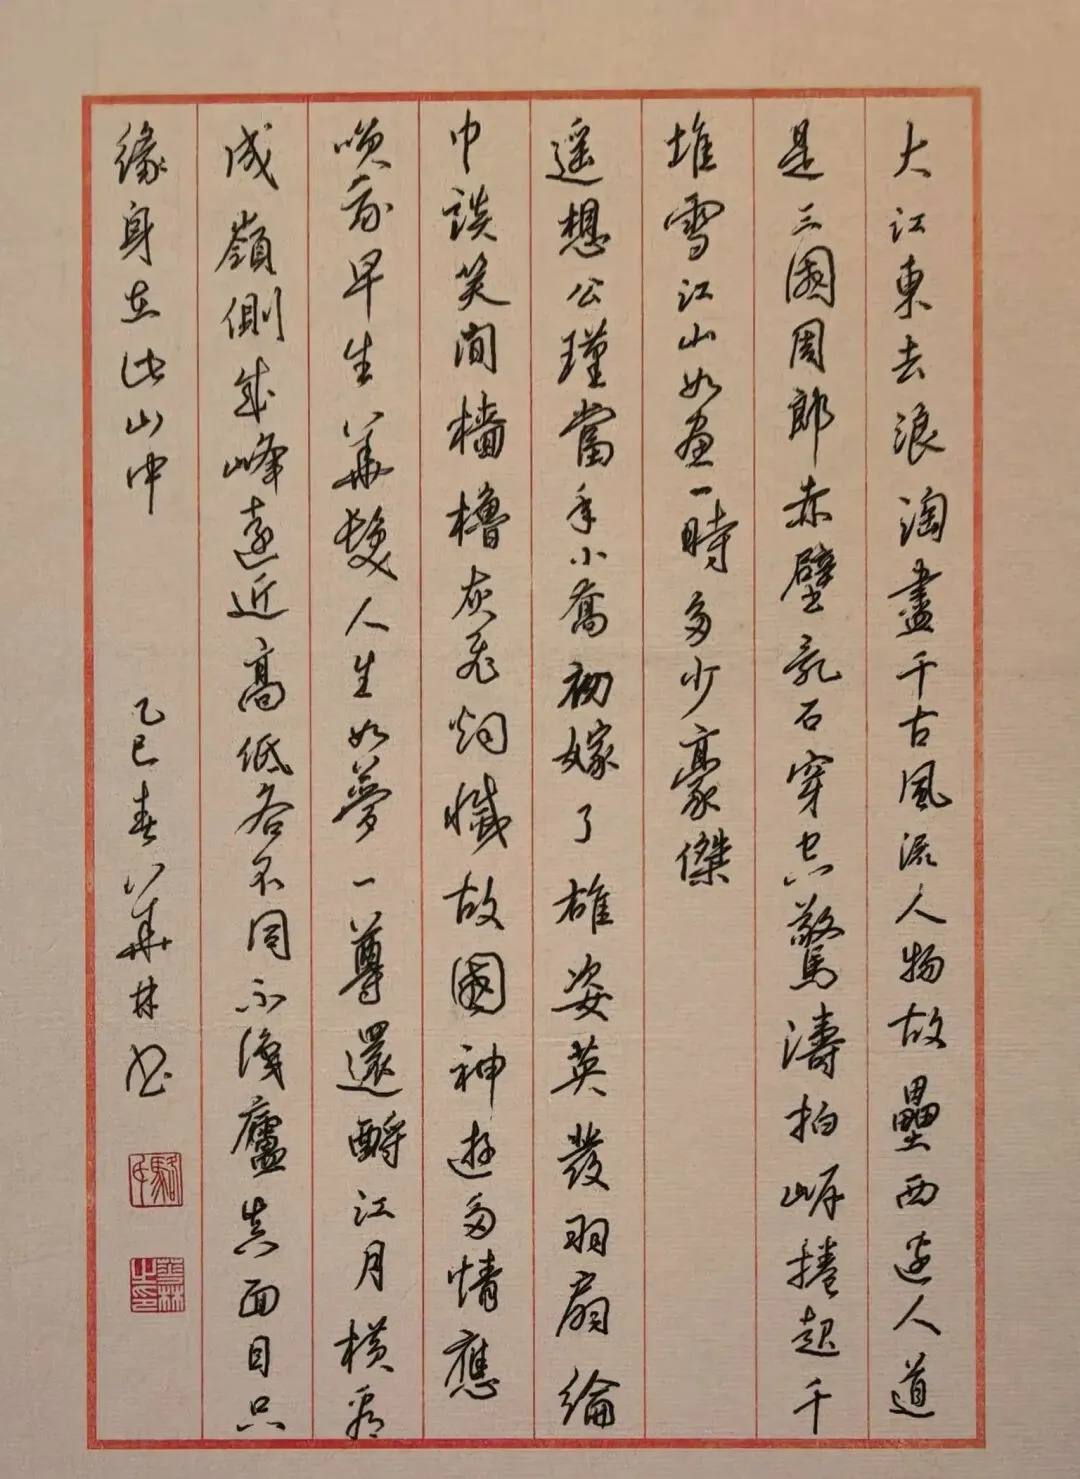 大江東去浪淘盡千古風流人物故壘西邊人道
是三國周郎赤壁亂石穿空驚濤拍岸捲起千
堆雪江山如畫一時多少豪傑
遥想公瑾當年小喬初嫁了雄姿英發羽扇綸
巾談笑間檣櫓灰飛烟滅故國神遊多情應
咲我早生華髮人生如夢一尊還酹江月橫看
成嶺側成峰遠近高低各不同不識廬真面目只
緣身在此山中
乙巳春華林書
華林之印